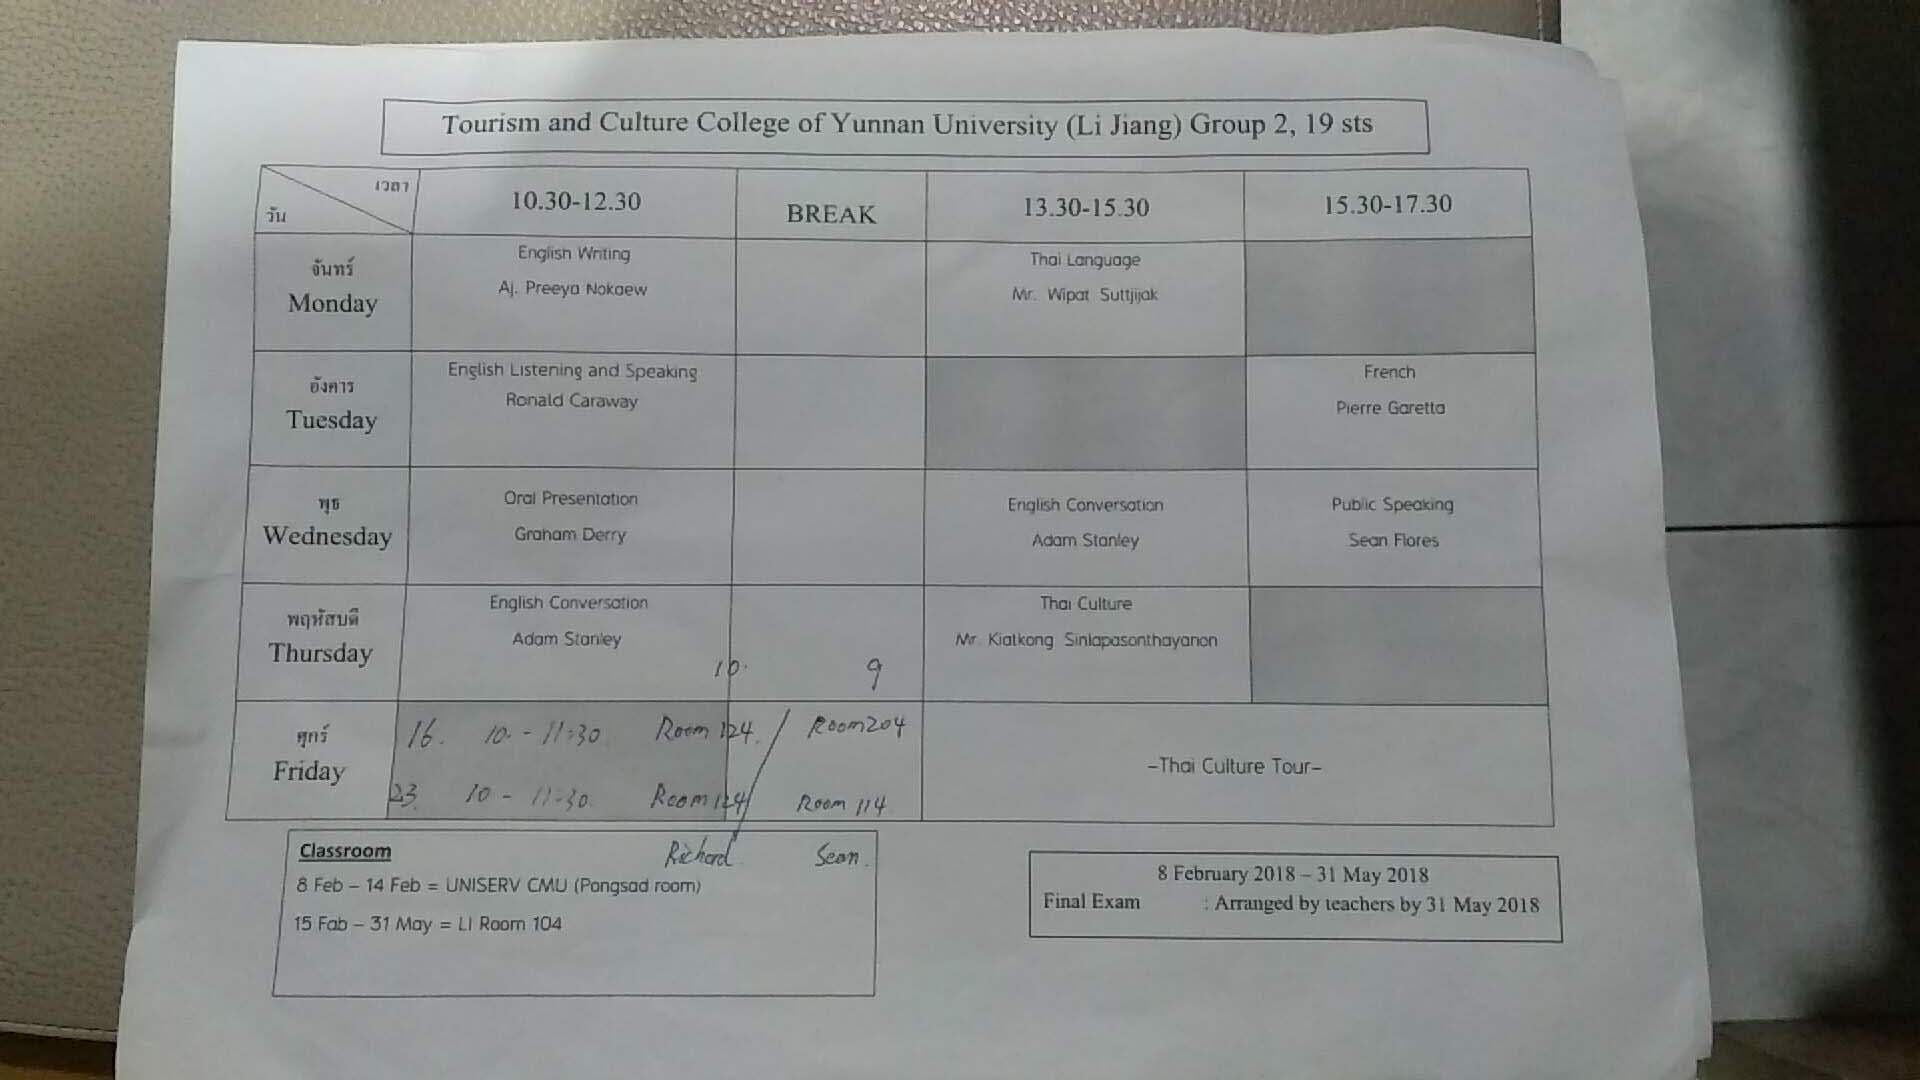 Tourism and Culture College of Yunnan University (Li Jiang) Group 2, 19 sts
เวลา
วัน
10.30-12.30
BREAK
13.30-15.30
15.30-17.30
จันทร์
Monday
English Writing
Aj. Preeya Nokaew
Thai Language
Mr. Wipat Suttjijak
อังคาร
Tuesday
English Listening and Speaking
Ronald Caraway
French
Pierre Garetta
พุธ
Wednesday
Oral Presentation
Graham Derry
English Conversation
Adam Stanley
Public Speaking
Sean Flores
พฤหัสบดี
Thursday
English Conversation
Adam Stanley
Thai Culture
Mr. Kiatkong Sinlapasonthayanon
10. 9
ศุกร์
Friday
16. 10. - 11:30 Room 124. / Room 204
23. 10 - 11:30. Room 124 Room 114
–Thai Culture Tour–
Richard. Sean.
Classroom
8 Feb – 14 Feb = UNISERV CMU (Pongsad room)
15 Fab – 31 May = LI Room 104
8 February 2018 – 31 May 2018
Final Exam : Arranged by teachers by 31 May 2018